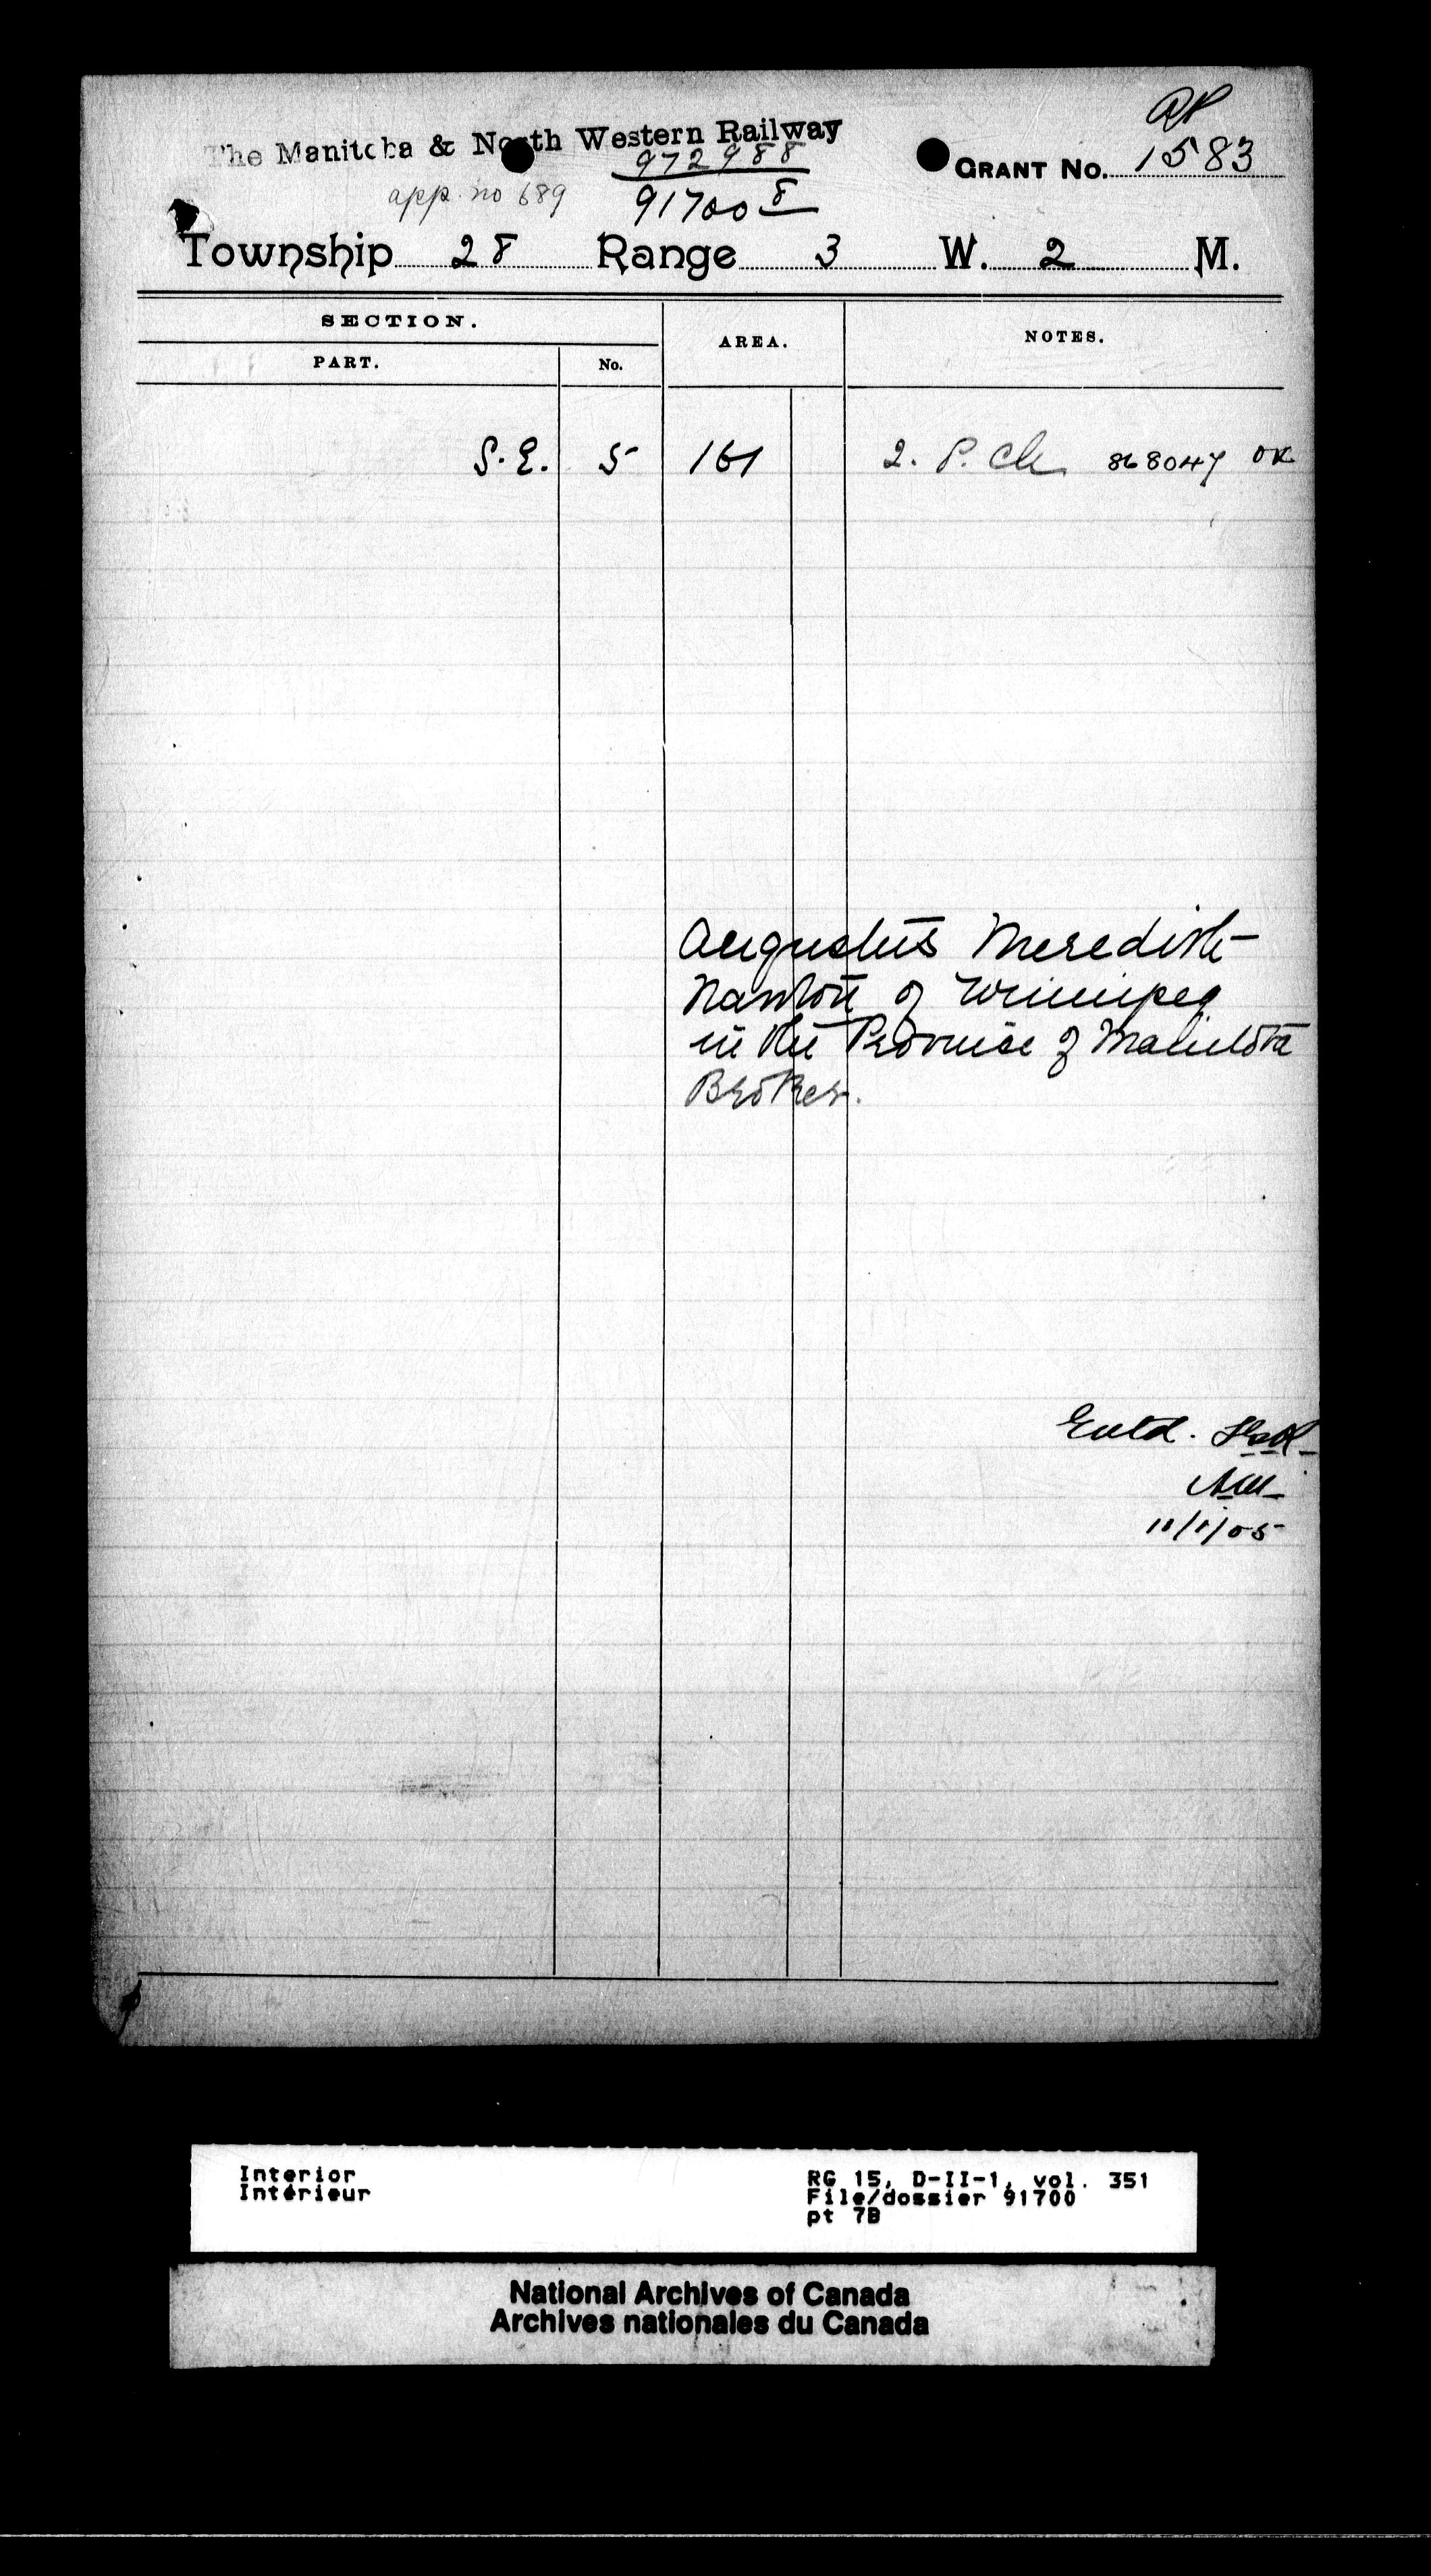 The Manitoba & North Western Railway
972988
GRANT No. 1583
app. no 689
91700 8
Township 28 Range 3 W. 2 M.
SECTION.
AREA.
NOTES.
PART.
No.
S.E. 5 161 2. P. Ck 868047 OK
Augustus Meredith
Nanton of Winnipeg
in the Province of Manitoba
Broker.
Entd.
11/1/05
Interior
Intérieur
RG 15, D-II-1, vol. 351
File/dossier 91700
pt 7B
National Archives of Canada
Archives nationales du Canada